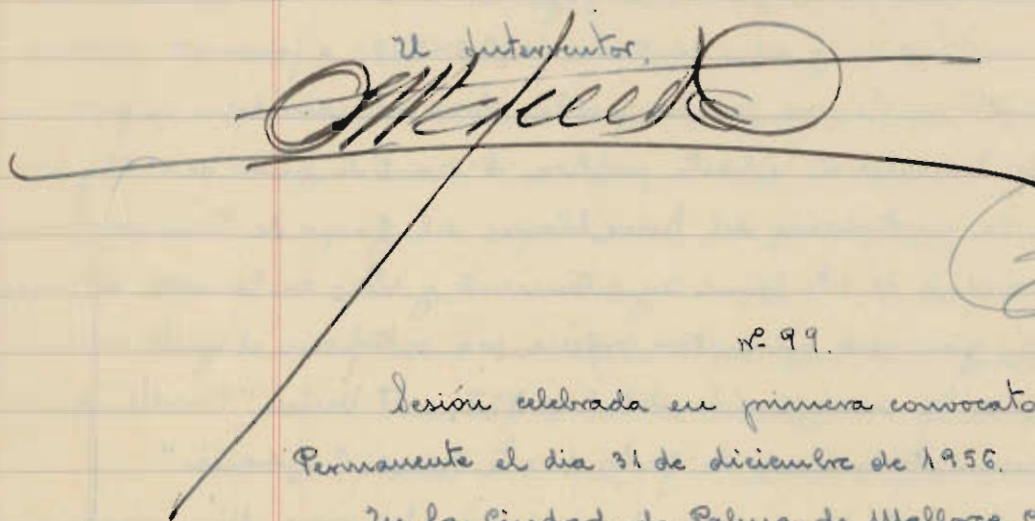 El Interventor,
nº 99.
Sesión celebrada en primera convocato
Permanente el dia 31 de diciembre de 1956.
En la Ciudad de Palma de Mallorca